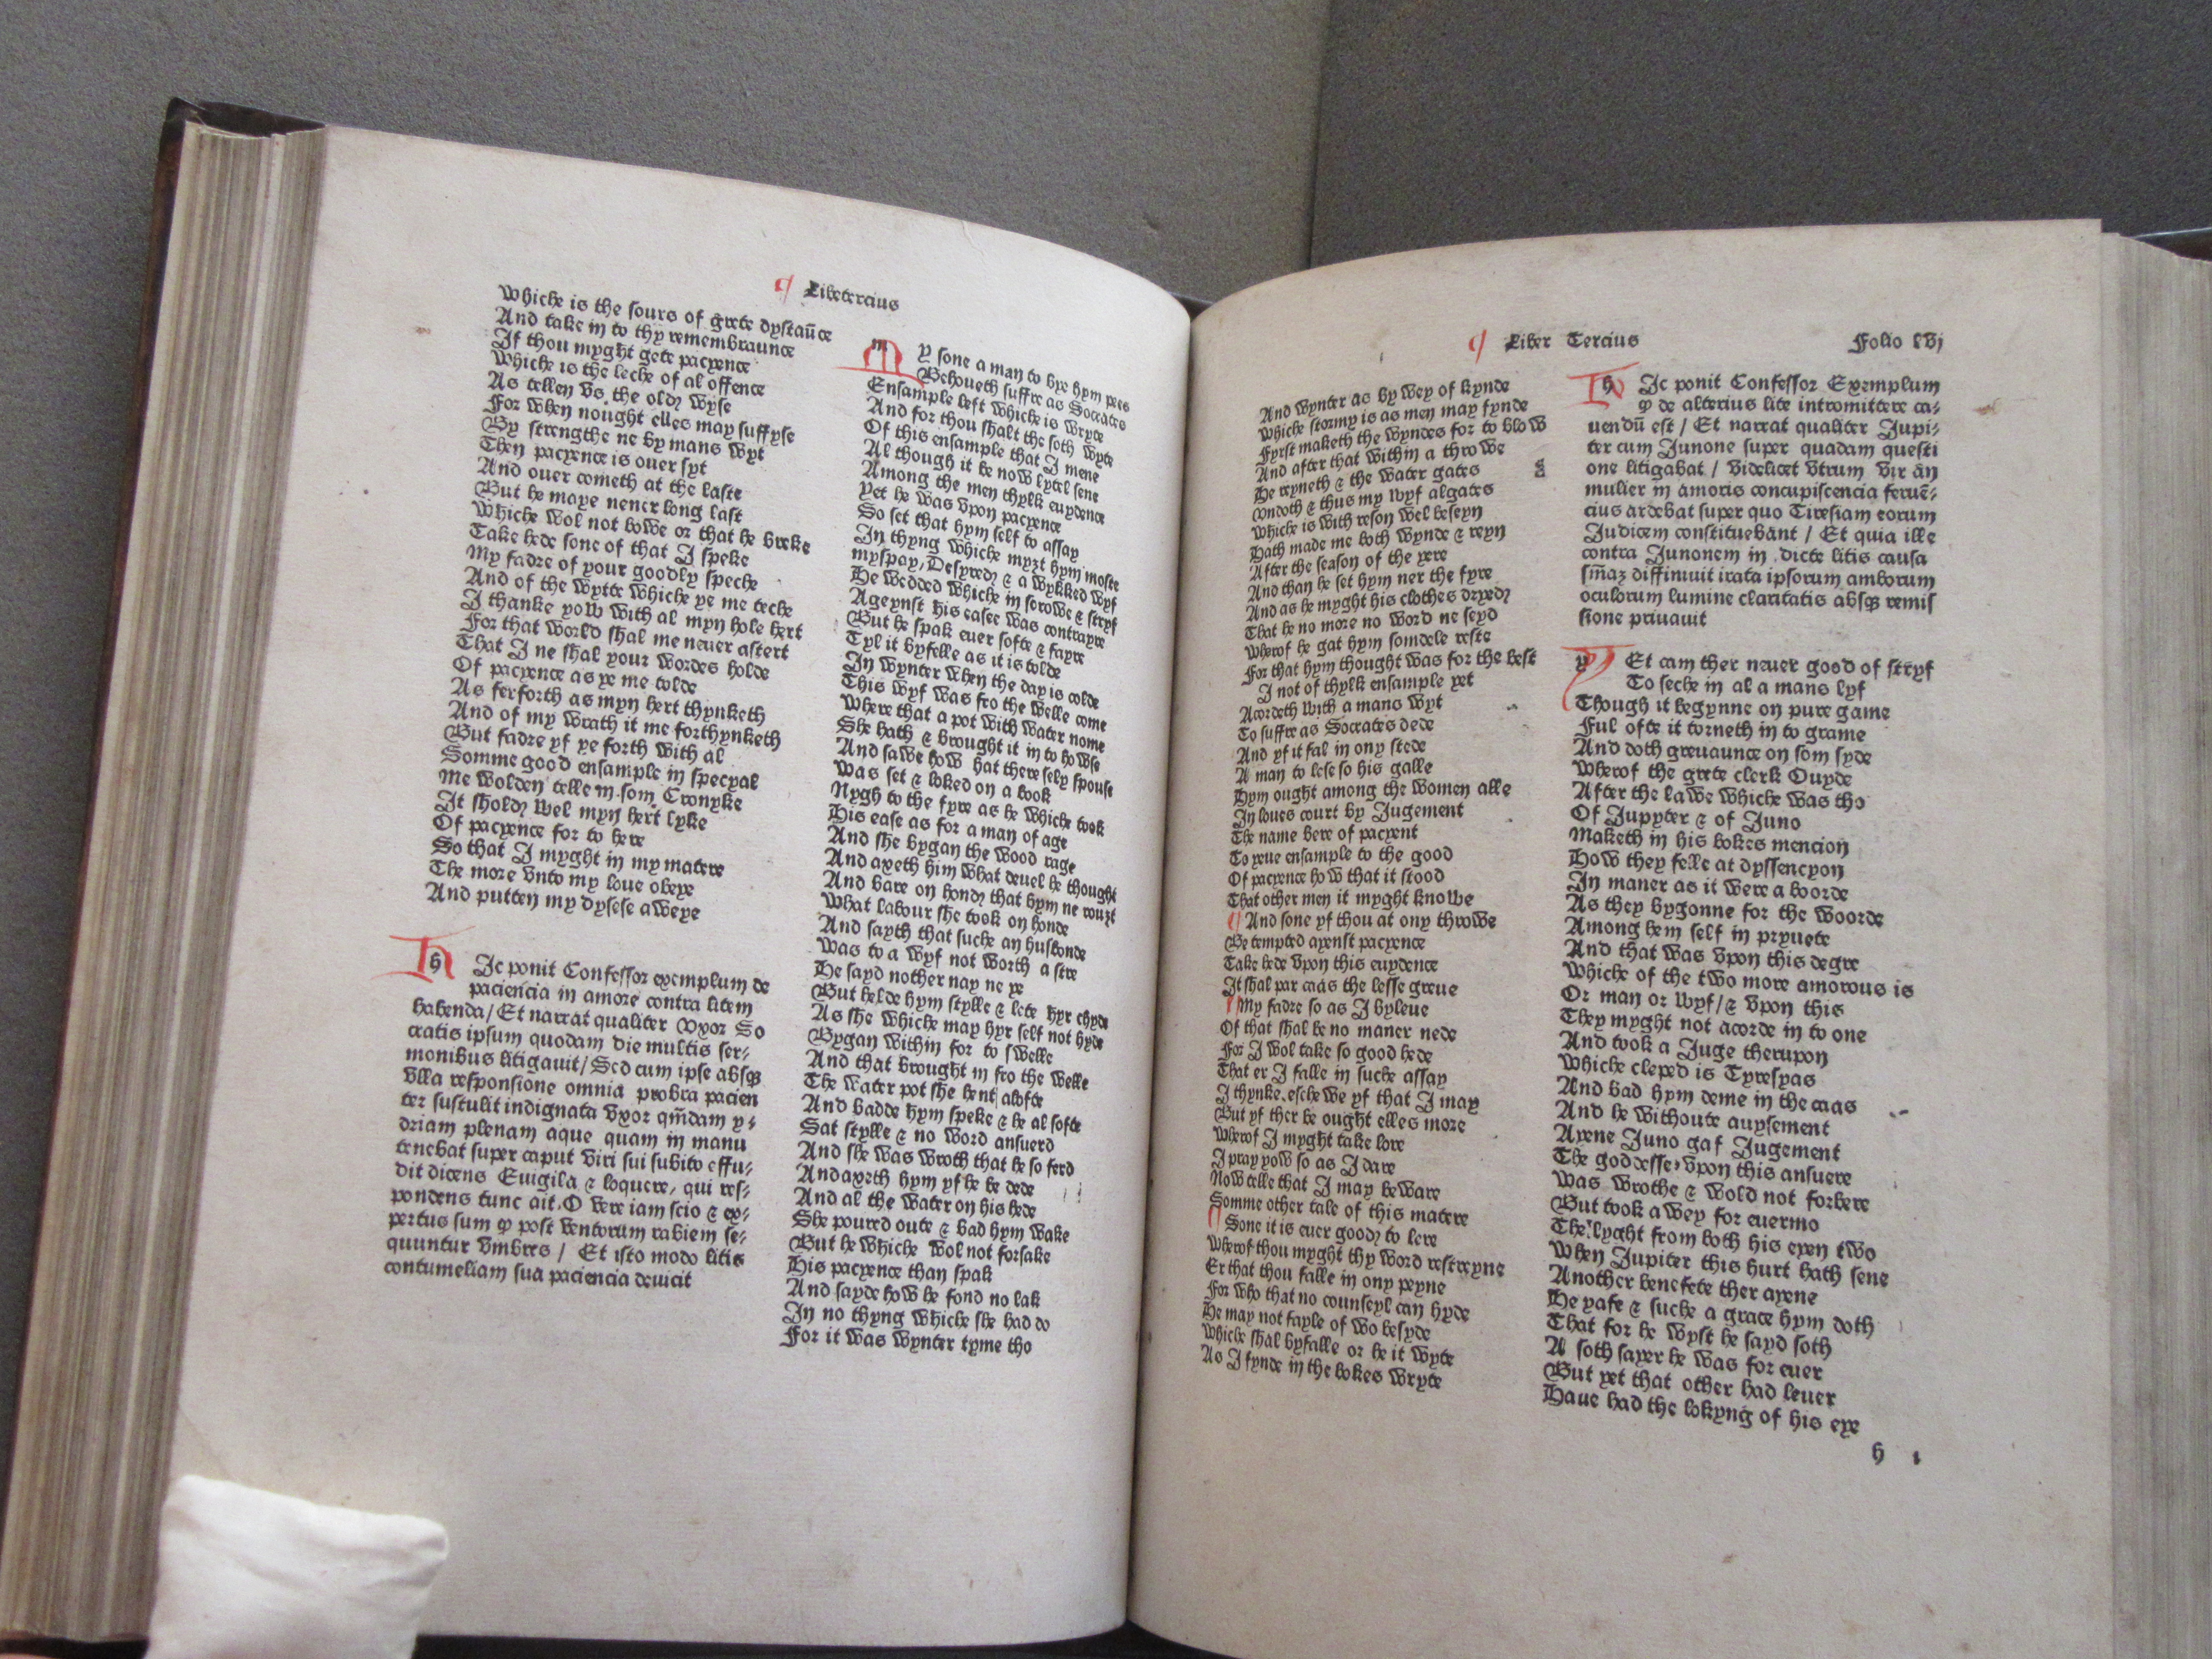 ¶ Libetercius
Whiche is the sours of grete dystaūce
And take in to thy remembraunce
If thou myght gete pacyence
Whiche is the leche of al offence
As tellen vs the old wyse
For when nought elles may suffyse
By strengthe ne by mans wyt
Then pacyence is ouer syt
And ouer cometh at the laste
But he maye neuer long last
Whiche wol not bowe or that he breke
Take hede sone of that I speke
My fadre of your goodly speche
And of the wytte whiche ye me teche
I thanke yow with al myn hole hert
For that world shal me neuer astert
That I ne shal your wordes holde
Of pacyence as ye me tolde
As ferforth as myn hert thynketh
And of my wrath it me forthynketh
But fadre yf ye forth with al
Somme good ensample in specyal
Me wolden telle in som Cronyke
It shold wel myn hert lyke
Of pacyence for to here
So that I myght in my matere
The more vnto my loue obeye
And putten my dysese aweye
Hic ponit Confessor exemplum de
paciencia in amore contra litem
habenda / Et narrat qualiter vxor So
cratis ipsum quodam die multis ser-
monibus litigauit / Sed cum ipse absqꝫ
vlla responsione omnia probra pacien
ter sustulit indignata vxor qm̄dam y-
driam plenam aque quam in manu
tenebat super caput viri sui subito effu-
dit dicens Euigila & loquere, qui res-
pondens tunc ait. O vere iam scio & ex-
pertus sum ꝙ post ventorum rabiem se-
quuntur ymbres / Et isto modo litis
contumeliam sua paciencia deuicit
My sone a man to bye hym pees
Behoueth suffre as Socrates
Ensample left whiche is wryte
And for thou shalt the soth wyte
Of this ensample that I mene
Al though it be now lytel sene
Among the men thylk euydence
Yet he was vpon pacyence
So set that hym self to assay
In thyng whiche myzt hym moste
myspay, Desyred & a wykked wyf
He wedded whiche in sorowe & stryf
Ageynst his easee was contrayre
But he spak euer softe & fayre
Tyl it byfelle as it is tolde
In wynter when the day is colde
This wyf was fro the welle come
Where that a pot with water nome
She hath & brought it in to howse
And sawe how hat there sely spouse
Was set & loked on a book
Nygh to the fyre as he whiche took
His ease as for a man of age
And she bygan the wood rage
And axeth him what deuel he thought
And bare on hond that hym ne rouzt
What labour she took on honde
And sayth that suche an husbonde
Was to a wyf not worth a stre
He sayd nother nay ne ye
But helde hym stylle & lete hyr chyde
As she whiche may hyr self not hyde
Bygan within for to swelle
And that brought in fro the welle
The water pot she hent alofte
And badde hym speke & he al softe
Sat stylle & no word ansuerd
And she was wroth that he so ferd
And axeth hym yf he be dede
And al the water on his hede
She poured oute & bad hym wake
But he whiche wol not forsake
His pacyence than spak
And sayde how he fond no lak
In no thyng whiche she had do
For it was wynter tyme tho
¶ Liber Tercius Folio lvj
And wynter as by wey of kynde
Whiche stormy is as men may fynde
Fyrst maketh the wyndes for to blow
And after that within a throwe
He reyneth & the water gates
Vndoth & thus my wyf algates
Whiche is with reson wel beseyn
Hath made me both wynde & reyn
After the season of the yere
And than he set hym ner the fyre
And as he myght his clothes dryed
That he no more no word ne seyd
Wherof he gat hym somdele reste
For that hym thought was for the best
I not of thylk ensample yet
Acordeth with a mans wyt
To suffre as Socrates dede
And yf it fal in ony stede
A man to lese so his galle
Hym ought among the women alle
In loues court by Jugement
The name bere of pacyent
To yeue ensample to the good
Of pacyence how that it stood
That other men it myght knowe
¶ And sone yf thou at ony throwe
Be tempted ayenst pacyence
Take hede vpon this euydence
It shal par caas the lesse greue
¶ My fadre so as I byleue
Of that shal be no maner nede
For I wol take so good hede
That er I falle in suche assay
I thynke eschewe yf that I may
But yf ther be ought elles more
Wherof I myght take lore
I pray yow so as I dare
Now telle that I may beware
Somme other tale of this matere
¶ Sone it is euer good to lere
Wherof thou myght thy word restreyne
Er that thou falle in ony peyne
For who that no counseyl can hyde
He may not fayle of wo besyde
Whiche shal byfalle or he it wyte
As I fynde in the bokes wryte
Hic ponit Confessor Exemplum
ꝙ de alterius lite intromittere ca-
uendū est / Et narrat qualiter Jupi-
ter cum Junone super quadam questi
one litigabat / videlicet vtrum vir an
mulier in amoris concupiscencia feruē-
cius ardebat super quo Tiresiam eorum
Judicem constituebant / Et quia ille
contra Junonem in dicte litis causa
sm̄aꝫ diffiniuit irata ipsorum amborum
oculorum lumine claritatis absqꝫ remis
sione priuauit
Yet cam ther neuer good of stryf
To seche in al a mans lyf
Though it begynne on pure game
Ful ofte it torneth in to grame
And doth greuaunce on som syde
Wherof the grete clerk Ouyde
After the lawe whiche was tho
Of Jupyter & of Juno
Maketh in his bokes mencion
How they felle at dyssencyon
In maner as it were a boorde
As they bygonne for the woorde
Among hem self in pryuete
And that was vpon this degre
Whiche of the two more amorous is
Or man or wyf / & vpon this
They myght not acorde in to one
And took a Juge therupon
Whiche cleped is Tyresyas
And bad hym deme in the caas
And he withoute auysement
Ayene Juno gaf Jugement
The goddesse vpon this ansuere
Was wrothe & wold not forbere
But took awey for euermo
The lyght from both his eyen two
When Jupiter this hurt hath sene
Another benefete ther ayene
He yafe & suche a grace hym doth
That for he wyst he sayd soth
A soth sayer he was for euer
But yet that other had leuer
Haue had the lokyng of his eye
h 1